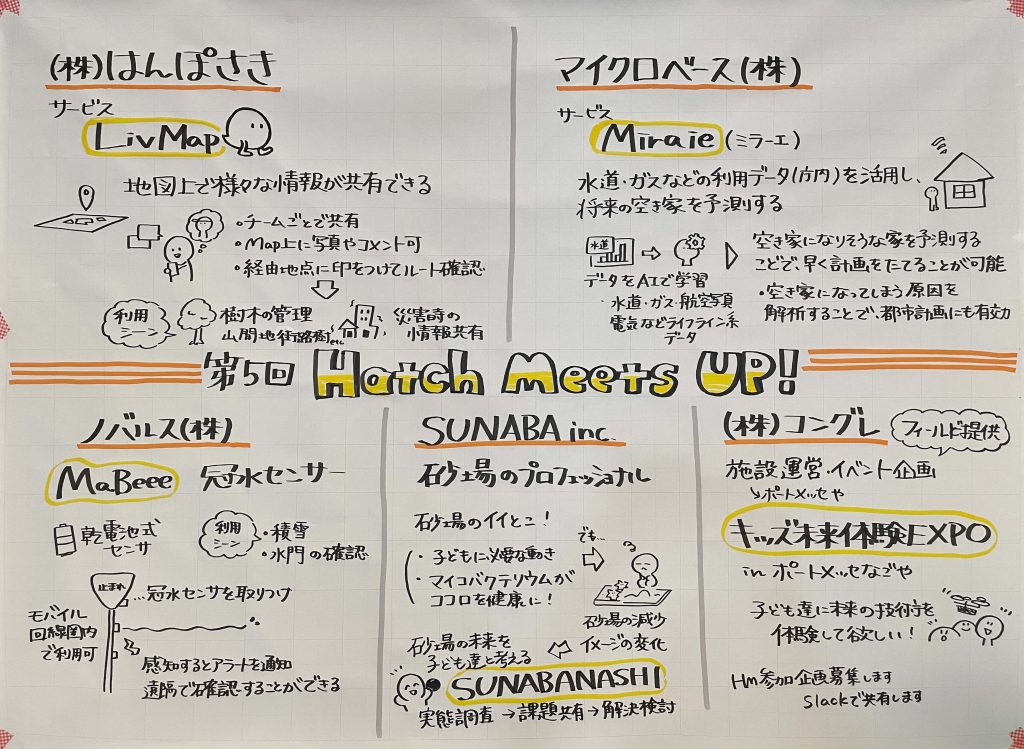 (株)はんぽさき
サービス
LivMap
地図上で様々な情報が共有できる
・チームごとで共有
・Map上に写真やコメント可
・経由地点に印をつけてルート確認
利用
シーン
樹木の管理
山間地街路樹etc
災害時の
情報共有
マイクロベース(株)
サービス
Miraie(ミラーエ)
水道・ガスなどの利用データ(庁内)を活用し、
将来の空き家を予測する
水道
データをAIで学習
・水道・ガス・航空写真
電気などライフライン系
データ
空き家になりそうな家を予測する
ことで、早く計画をたてることが可能
・空き家になってしまう原因を
解析することで、都市計画にも有効
第5回 Hatch Meets UP!
ノバルス(株)
MaBeee 冠水センサー
乾電池式
センサ
利用
シーン
・積雪
・水門の確認
止まれ
…冠水センサを取りつけ
モバイル
回線圏内
で利用可
感知するとアラートを通知
遠隔で確認することができる
SUNABA inc.
砂場のプロフェッショナル
砂場のイイとこ!
・子どもに必要な動き
・マイコバクテリウムが
ココロを健康に!
でも…
砂場の減少
イメージの変化
砂場の未来を
子ども達と考える
SUNABANASHI
実態調査→課題共有→解決検討
(株)コングレ
フィールド提供
施設運営・イベント企画
↳ポートメッセや
キッズ未来体験EXPO
in ポートメッセなごや
子ども達に未来の技術を
体験して欲しい!
Hm参加企画募集します
Slackで共有します